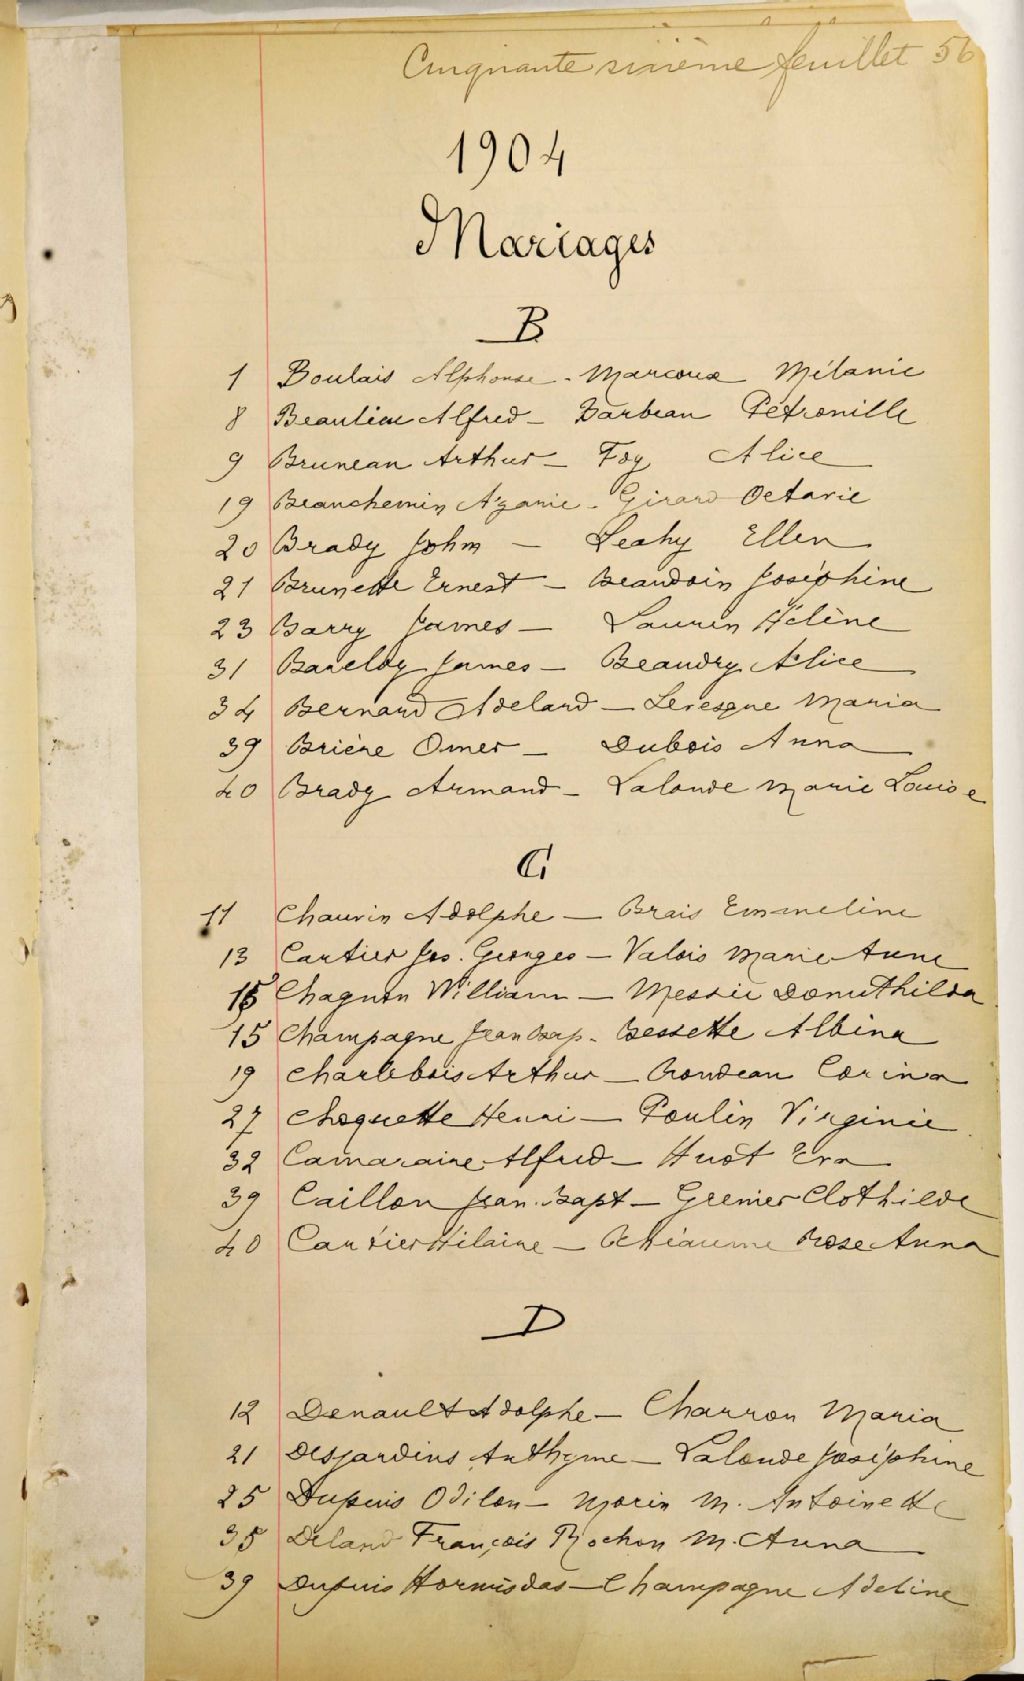 Cinquante sixième feuillet 56
1904
Mariages
B
1 Boulais Alphonse - Marcoux Mélanie
8 Beaulieu Alfred - Barbeau Pétronille
9 Bruneau Arthur - Foy Alice
19 Beauchemin Azarie - Girard Octavie
20 Brady John - Leahy Ellen
21 Brunette Ernest - Beaudoin Joséphine
23 Barry James - Laurin Hélène
31 Barclay James - Beaudry Alice
34 Bernard Adelard - Levesque Maria
39 Brière Omer - Dubois Anna
40 Brady Armand - Lalonde Marie Louise
C
11 Chauvin Adolphe - Brais Emmeline
13 Cartier Jos. Georges - Valois Marie Anne
15 Chagnon William - Messie Domithilda
15 Champagne Jean Bap. Bessette Albina
19 Charlebois Arthur - Rondeau Corina
27 Choquette Henri - Poulin Virginie
32 Camaraire Alfred - Huot Eva
39 Caillon Jean-Bapt - Grenier Clothilde
40 Cartier Hilaire - Rose Anna
D
12 Denault Adolphe - Charron Maria
21 Desjardins Anthyme - Lalonde Joséphine
25 Dupuis Odilon - Morin M. Antoinette
35 Deland François Rochon M. Anna
39 Dupuis Hormisdas - Champagne Adeline